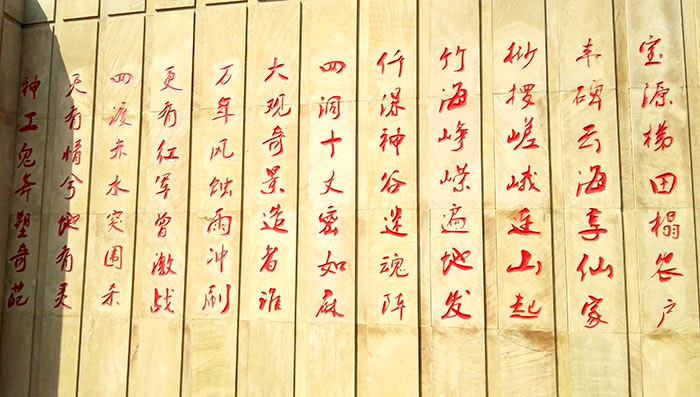 宝源梯田榻农户
丰碑云海享仙家
桫椤嵯峨连山起
竹海峥嵘遍地发
仟瀑神谷迷魂阵
四洞十丈密如麻
大观奇景造者谁
万年风蚀雨冲刷
更有红军曾激战
四渡赤水突围杀
天有情兮地有灵
神工鬼斧塑奇葩